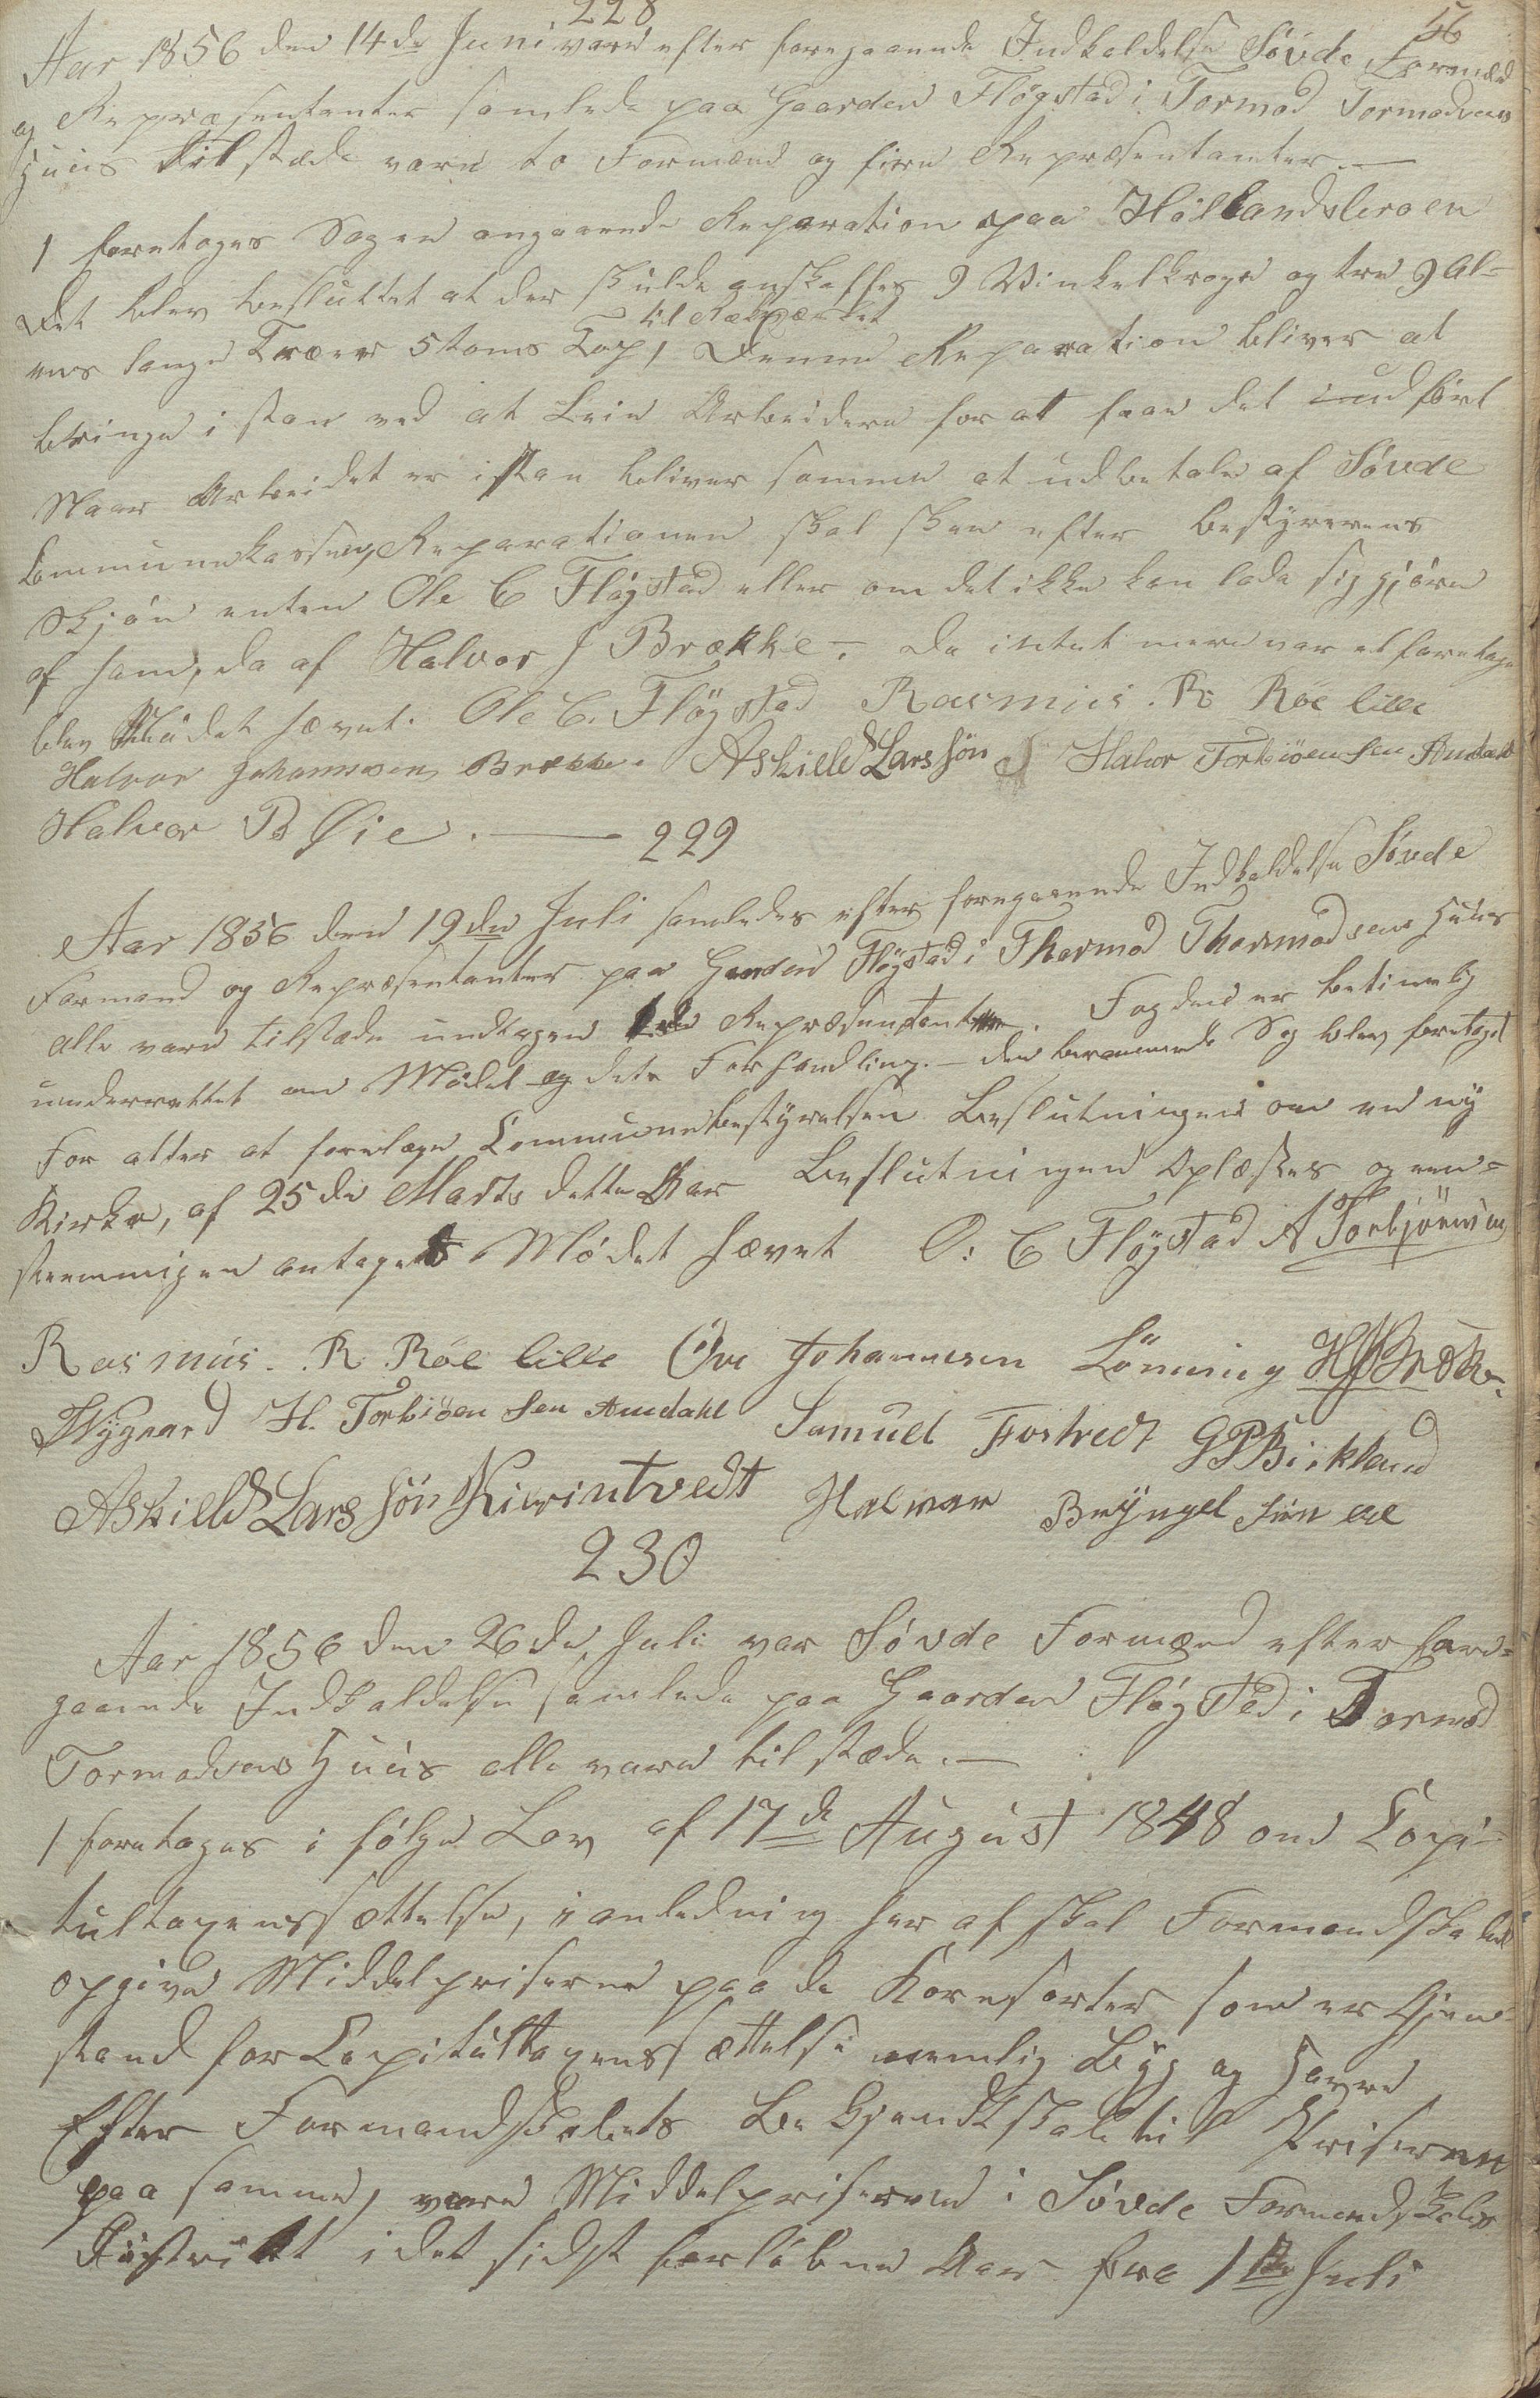 228
56
Aar 1856 den 14de Juni vare efter foregaaende Indkaldelse Søvde Formænd
og Repræsentanter samlede paa Gaarden Fløgstad i Tormod Tormodsens
Huus tilstæde vare to Formænd og fire Repræsentanter. —
1 foretoges Sagen angaaende Reparation paa Høllandsbroen
Det blev besluttet at der skulde anskaffes 9 Vinkelkroge og tre 9 Al=
til Rækværket
ens lange Træer 5 toms Top, Denne Reparation bliver at
bringe i stan ved at Leie Arbeidere for at faae det udført
Naar Arbeidet er istan bliver samme at udbetale af Søvde
Communekasse, Reparationen skal skee efter bestyrerens
Skjøn enten Ole C Fløgstad eller om det ikke kan lade sig gjøre
af ham, da af Halvor J Brække. — Da intet mere var at foretage
blev Mødet hævet. Ole C. Fløgstad Rasmus. R. Röe lille
Halvor Johannesen Brække. Askield Larssøn Halvor Torbiöensen Amdahl
Halvor B Øie. — 229
Aar 1856 den 19de Juli samledes efter foregaaende Indkaldelse Søvde
Formænd og Repræsentanter paa Gaarden Fløgstad i Thormod Thormodsens Huus
alle vare tilstæde undtagen Repræsentant. Fogden er betimelig
underrettet om Mødet og dets Forhandling. — den berammede Sag blev foretaget
For atter at forelæge Communebestyrelsen Beslutningen om en ny
Kirke, af 25de Marts dette Aar Beslutningen Oplæstes og een=
stemmigen antages Mødet hævet O: C Fløgstad A Torbjörnsen
Rasmus. R. Röe lille Ove Johannesen Lönning HJBrække.
Nygaard H. Torbiöensen Amdahl Samuel Fostvedt GPBirkland
Askield Larssøn Kirintvedt Halvor Bryngelsøn
230
Aar 1856 den 26de Juli var Søvde Formænd efter fore=
gaaende Indkaldelse samlede paa Gaarden Fløgstad i Tormod
Tormodsens Huus alle vare tilstæde. —
1 foretoges i følge Lov af 17de August 1848 om Capi=
teltaxenssættelse, i anledning her af skal Formandskabet
opgive Middelpriserne paa de Kornsorter som er Gjen=
stand for Capiteltaxenssættelse nemlig Byg og Havre
Efter Formandskabets Bekjendtskab til Priserne
paa samme, vare Middelpriserne i Søvde Formandskabs
Distrikt i det sidst forløbne Aar fra 1ste Juli